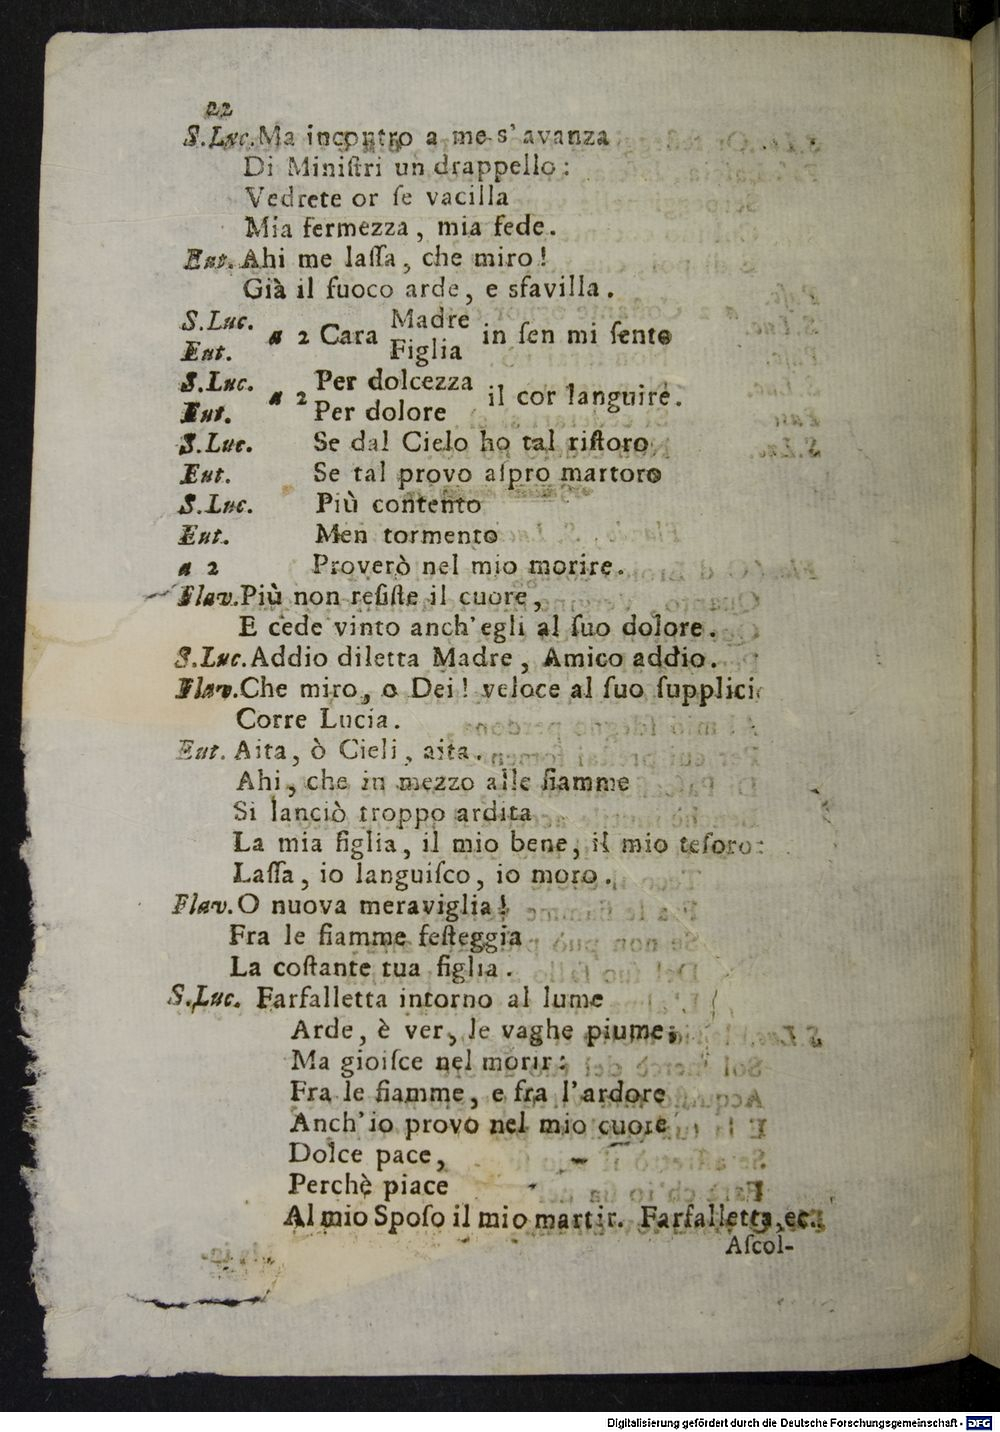 22
S.Luc. Ma incontro a me s'avanza
Di Miniſtri un drappello:
Vedrete or ſe vacilla
Mia fermezza, mia fede.
Eut. Ahi me laſſa, che miro!
Già il fuoco arde, e sfavilla.
S.Luc. Eut. a 2 Cara Madre Figlia in ſen mi ſento
S.Luc. Eut. a 2 Per dolcezza Per dolore il cor languire.
S.Luc. Se dal Cielo ho tal riſtoro
Eut. Se tal provo aſpro martoro
S.Luc. Più contento
Eut. Men tormento
a 2 Proverò nel mio morire.
Flav. Più non reſiſte il cuore,
E cede vinto anch'egli al ſuo dolore.
S.Luc. Addio diletta Madre, Amico addio.
Flav. Che miro, o Dei! veloce al ſuo ſupplici
Corre Lucia.
Eut. Aita, ò Cieli, aita.
Ahi, che in mezzo alle fiamme
Si lanciò troppo ardita
La mia figlia, il mio bene, il mio teſoro:
Laſſa, io languiſco, io moro.
Flav. O nuova meraviglia!
Fra le fiamme feſteggia
La coſtante tua figlia.
S.Luc. Farfalletta intorno al lume
Arde, è ver, le vaghe piume;
Ma gioiſce nel morir:
Fra le fiamme, e fra l'ardore
Anch'io provo nel mio cuore
Dolce pace,
Perchè piace
Al mio Spoſo il mio martir. Farfalletta, ec.
Aſcol-
Digitalisierung gefördert durch die Deutsche Forschungsgemeinschaft - DFG